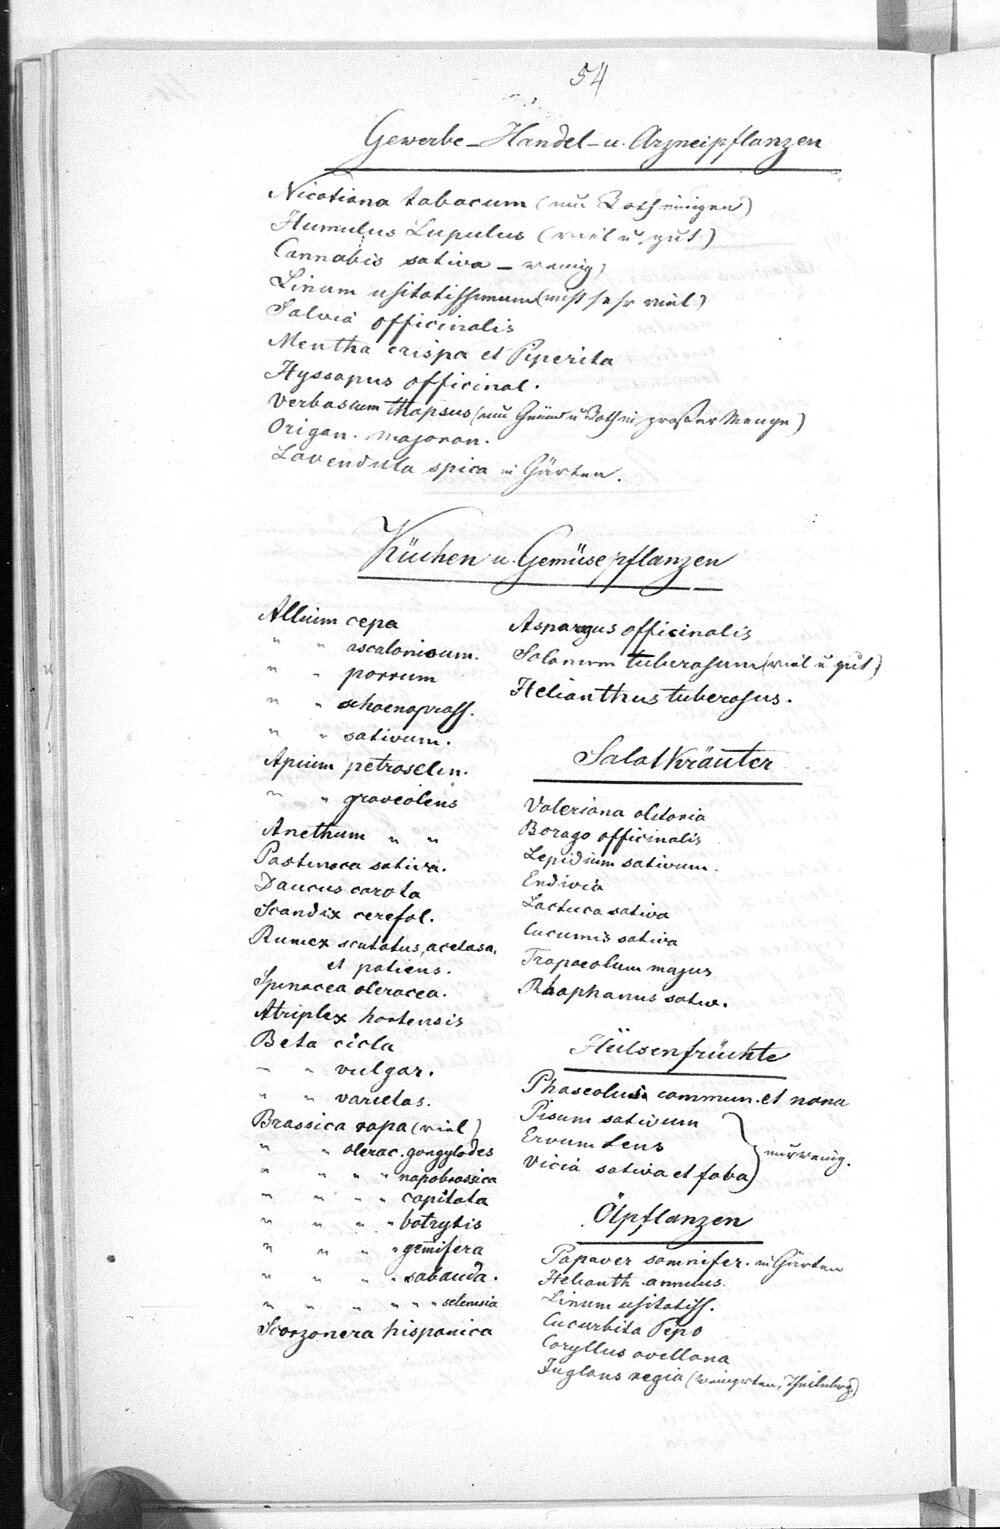 54
Gewerbe-Handel-u. Arzneipflanzen
Nicotiana tabacum (nur
Humulus Lupulus (viel u. gut)
Cannabis sativa - wenig
Linum usitatissimum (nicht sehr viel)
Salvia officinalis
Mentha crispa et Piperita
Hyssopus officinal.
Verbascum thapsus (nur Gmünd u. in grosser Menge)
Origan. majoran.
Lavendula spica in Gärten.
Küchen u. Gemüsepflanzen
Allium cepa
" " ascalonicum.
" " porrum
" " schoenoprass.
" " sativum.
Apium petroselin.
" " graveolens
Anethum " "
Pastinaca sativa.
Daucus carota
Scandix cerefol.
Rumex scutatus, acetosa,
et patiens.
Spinacea oleracea.
Atriplex hortensis
Beta cicla
" " vulgar.
" " varietas.
Brassica rapa (viel)
" " olerac. gongylodes
" " " " napobrassica
" " " " capitata
" " " " botrytis
" " " " gemifera
" " " " sabauda.
" " " " " " selenisia
Scorzonera hispanica
Asparagus officinalis
Solanum tuberosum (viel u. gut)
Helianthus tuberosus.
Salatkräuter
Valeriana olitoria
Borago officinalis
Lepidium sativum.
Endivia
Lactuca sativa
Cucumis sativa
Tropaeolum majus
Rhaphanus sativ.
Hülsenfrüchte
Phaseolus commun. et nana
Pisum sativum
Ervum Lens
Vicia sativa et faba
nur wenig.
Ölpflanzen
Papaver somnifer. in Gärten
Helianth. annuus.
Linum usitatiss.
Cucurbita Pepo
Coryllus avellana
Juglans regia (Weingarten,